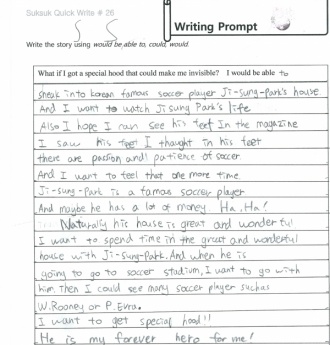 Suksuk Quick Write # 26
S S
Writing Prompt
Write the story using would be able to, could, would.
What if I got a special hood that could make me invisible? I would be able to
sneak into korean famous soccer player Ji-Sung-Park's house
And I want to watch Ji sung Park's life
Also I hope I can see his feet In the magazine
I saw his feet I thought in his feet
there are passion and patience of soccer.
And I want to feel that one more time.
Ji-sung-Park is a famous soccer player
And maybe he has a lot of money Ha, Ha!
Naturally his house is great and wonderful
I want to spend time in the great and wonderful
house with Ji-sung-Park. And when he is
going to go to soccer stadium, I want to go with
him then I could see many soccer player suchas
W.Rooney or P.Evra.
I want to get special hood!!
He is my forever hero for me!